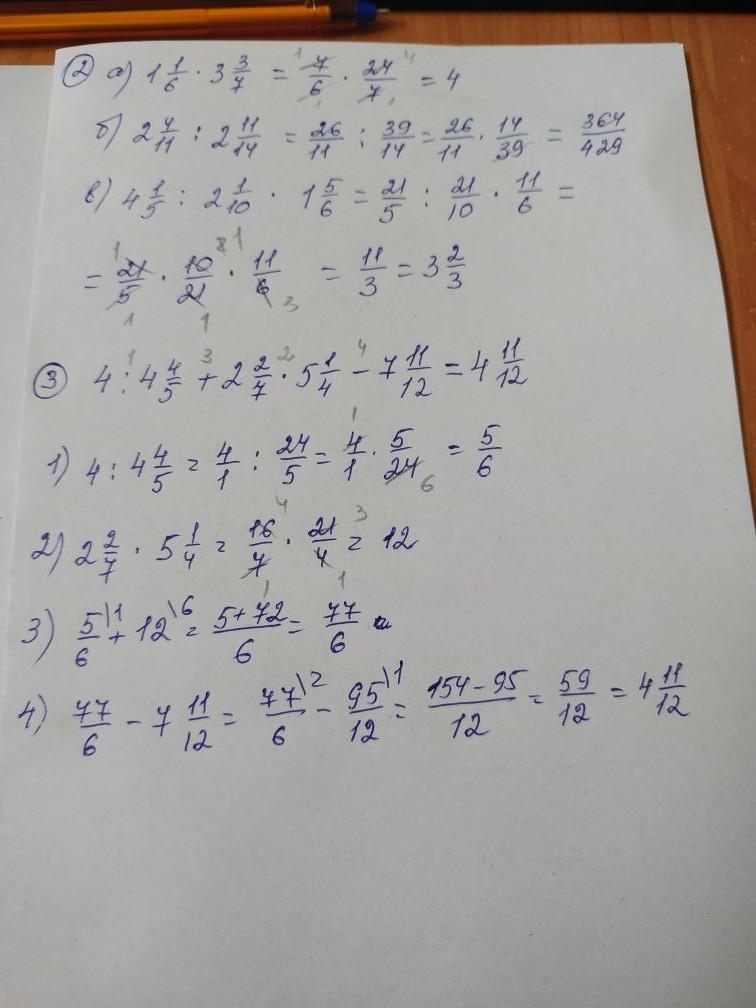 ② а) 1 1/6 · 3 3/7 = 7/6 · 24/7 = 4
б) 2 4/11 : 2 11/14 = 26/11 : 39/14 = 26/11 · 14/39 = 364/429
в) 4 1/5 : 2 1/10 · 1 5/6 = 21/5 : 21/10 · 11/6 =
= 21/5 · 10/21 · 11/6 = 11/3 = 3 2/3
③ 4 : 4 4/5 + 2 2/7 · 5 1/4 − 7 11/12 = 4 11/12
1) 4 : 4 4/5 = 4/1 : 24/5 = 4/1 · 5/24 = 5/6
2) 2 2/7 · 5 1/4 = 16/7 · 21/4 = 12
3) 5/6 \1 + 12 \6 = 5+72/6 = 77/6
4) 77/6 − 7 11/12 = 77/6 \2 − 95/12 \1 = 154−95/12 = 59/12 = 4 11/12